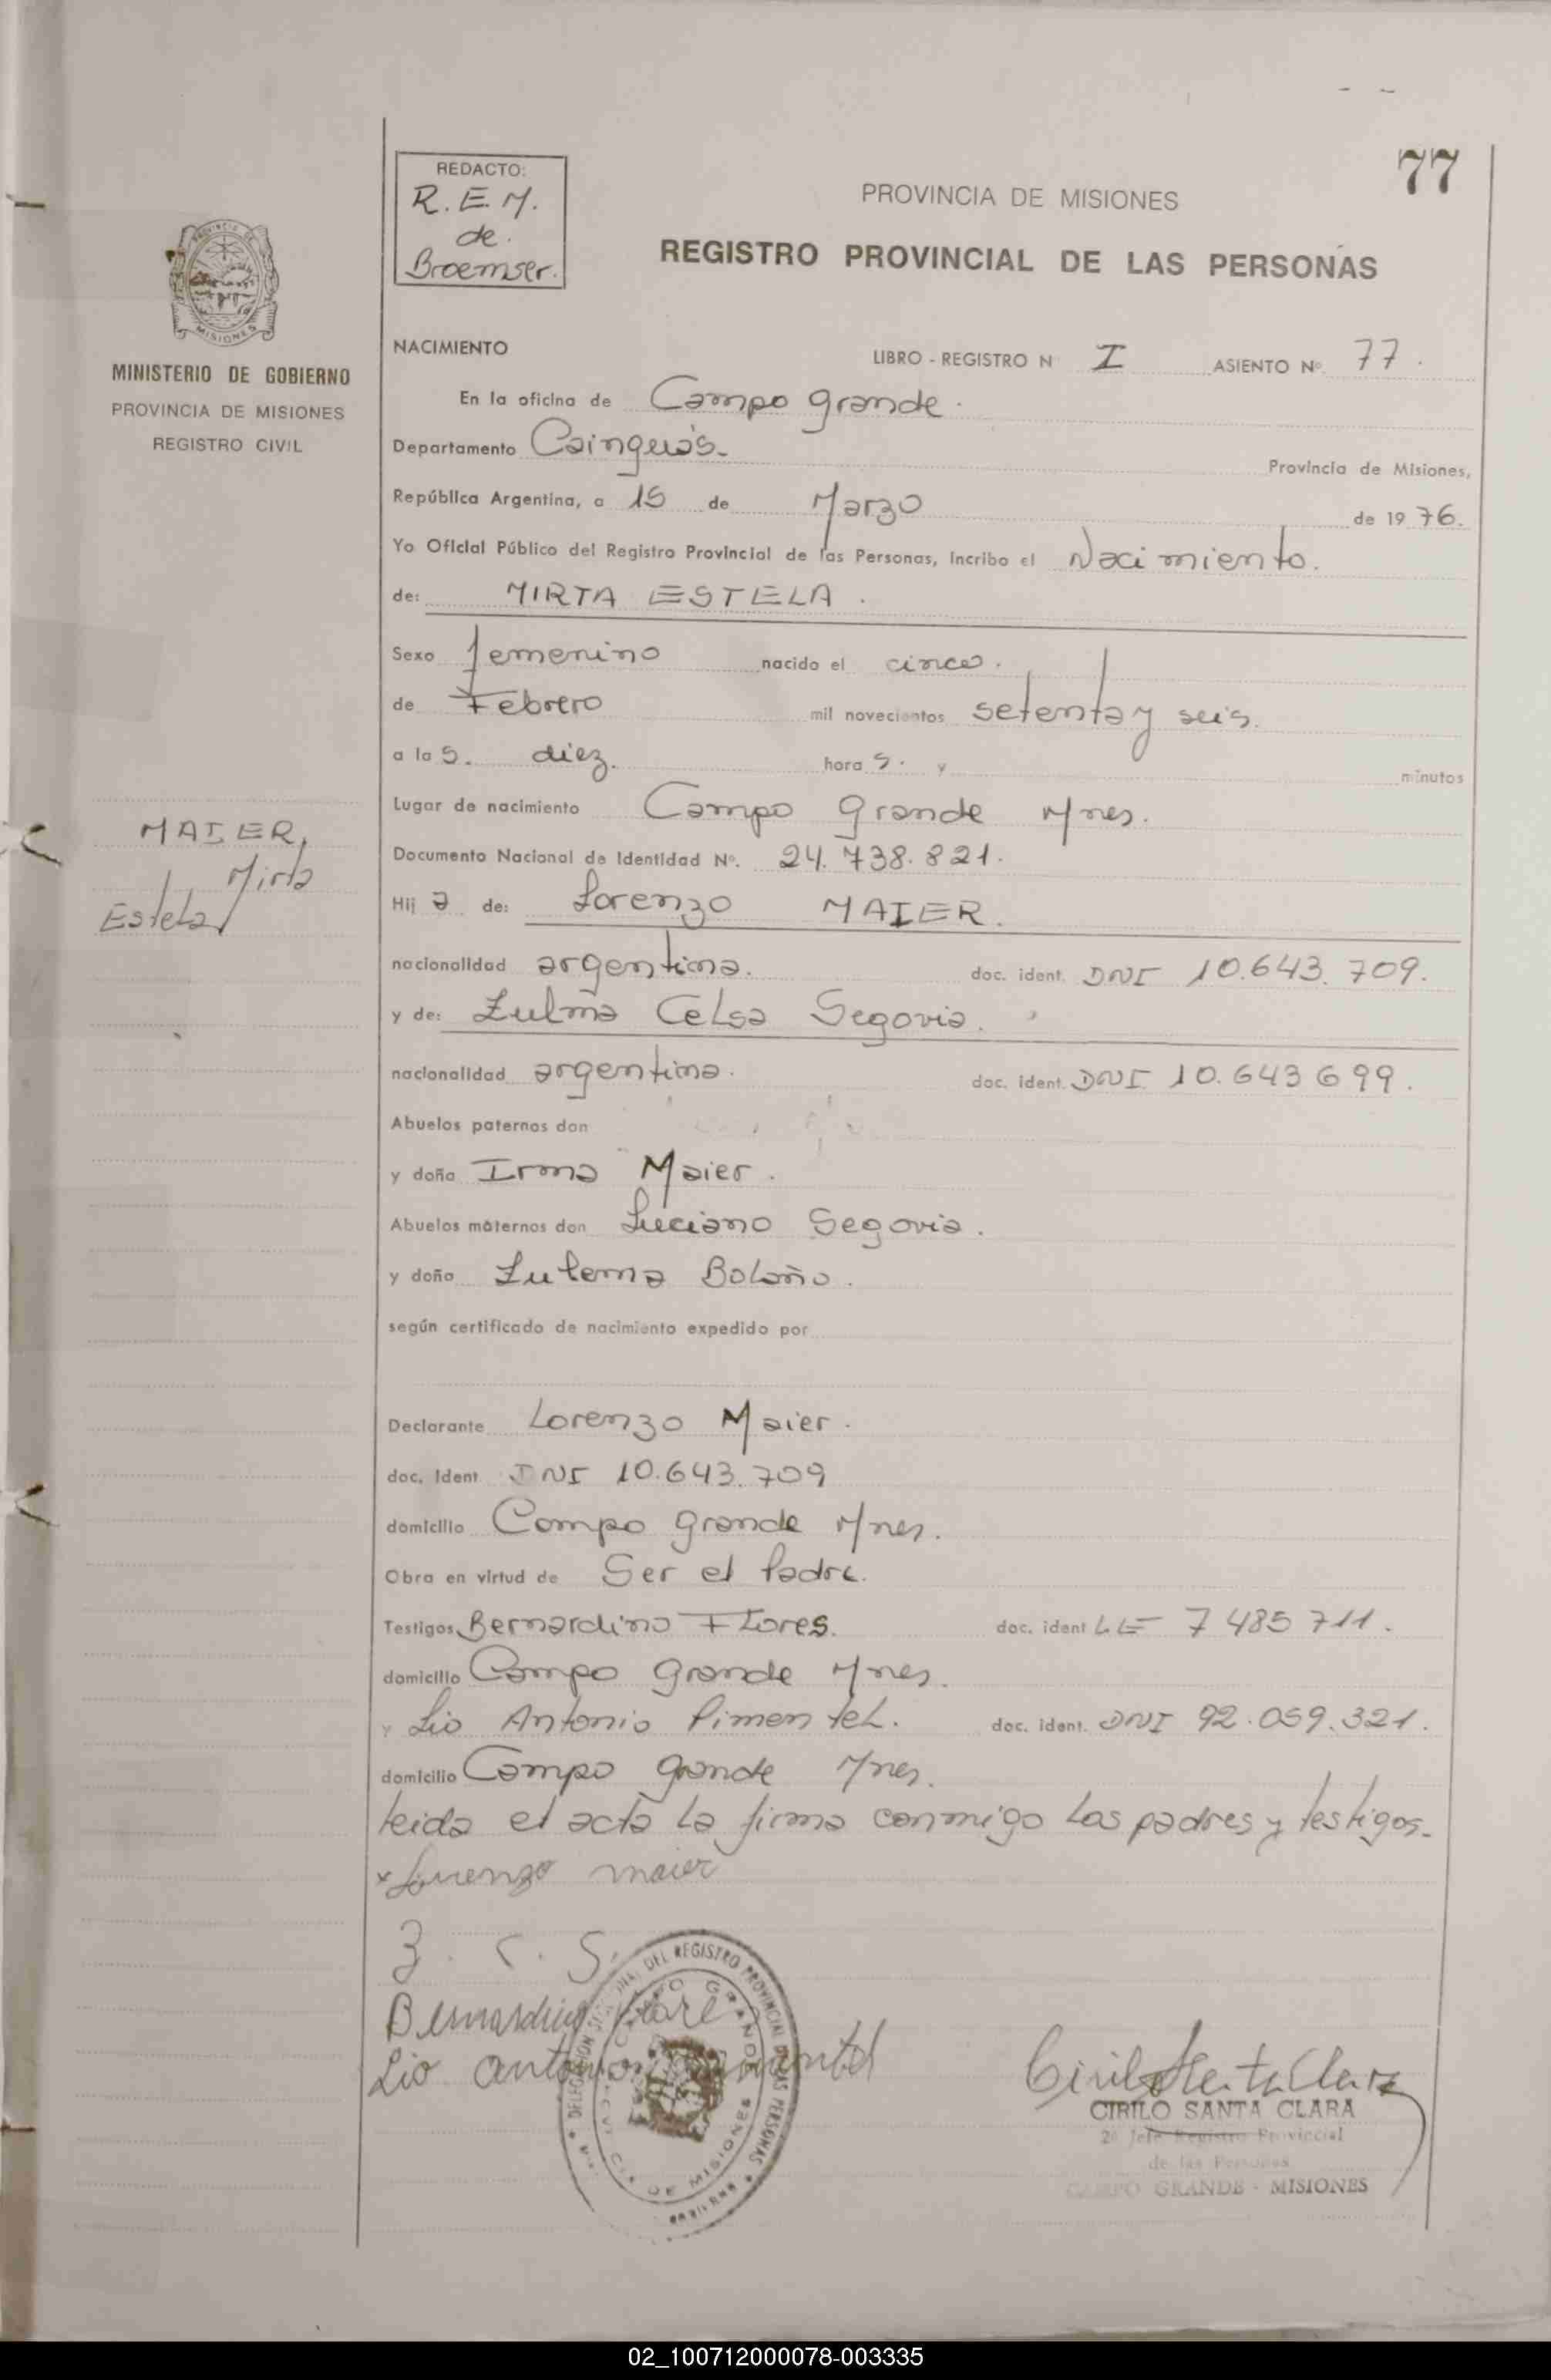 77
REDACTO:
R. E. M.
de.
Broemser.
PROVINCIA DE MISIONES
REGISTRO PROVINCIAL DE LAS PERSONAS
MISIONES
MINISTERIO DE GOBIERNO
PROVINCIA DE MISIONES
REGISTRO CIVIL
NACIMIENTO LIBRO - REGISTRO N I ASIENTO Nº 77.
En la oficina de Campo grande.
Departamento Cainguás- Provincia de Misiones,
República Argentina, a 15 de Marzo de 19 76.
Yo Oficial Público del Registro Provincial de las Personas, Incribo el Nacimiento.
de: MIRTA ESTELA.
Sexo femenino nacido el cinco.
de Febrero mil novecientos setenta y seis.
a la s. diez. hora s. y minutos
Lugar de nacimiento Campo grande Mnes.
MAIER,
Mirta
Estela
Documento Nacional de Identidad Nº. 24.738.821.
Hij a de: Lorenzo MAIER.
nacionalidad argentina. doc. ident. DNI 10.643.709.
y de: Zulma Celsa Segovia.
nacionalidad argentina. doc. ident. DNI. 10.643 699.
Abuelos paternos don
y doña Irma Maier.
Abuelos maternos don Luciano Segovia.
y doña Zulema Bolaño.
según certificado de nacimiento expedido por
Declarante Lorenzo Maier.
doc. Ident DNI 10.643.709
domicilio Campo grande Mnes.
Obra en virtud de Ser el Padre.
Testigos Bernardino Flores. doc. ident LE 7 485 711.
domicilio Campo grande Mnes.
y Lio Antonio Pimentel. doc. ident. DNI 92.059.321.
domicilio Campo grande Mnes.
leida el acta la firma conmigo los padres y testigos.
x Lorenzo maier
Z. C. S.
Bernardino Flore
Lio antonio
DEL REGISTRO PROVINCIAL DE LAS PERSONAS
DE MISIONES
Cirilo Santa Clara
CIRILO SANTA CLARA
2º Jefe Registro Provincial
de las Personas
CAMPO GRANDE - MISIONES
02_100712000078-003335